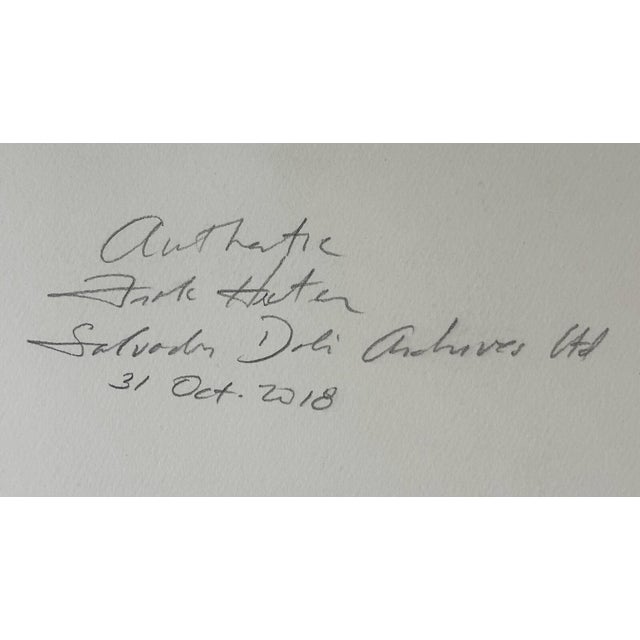 Authentic
Frank Hunter
Salvador Dali Archives Ltd
31 Oct. 2018